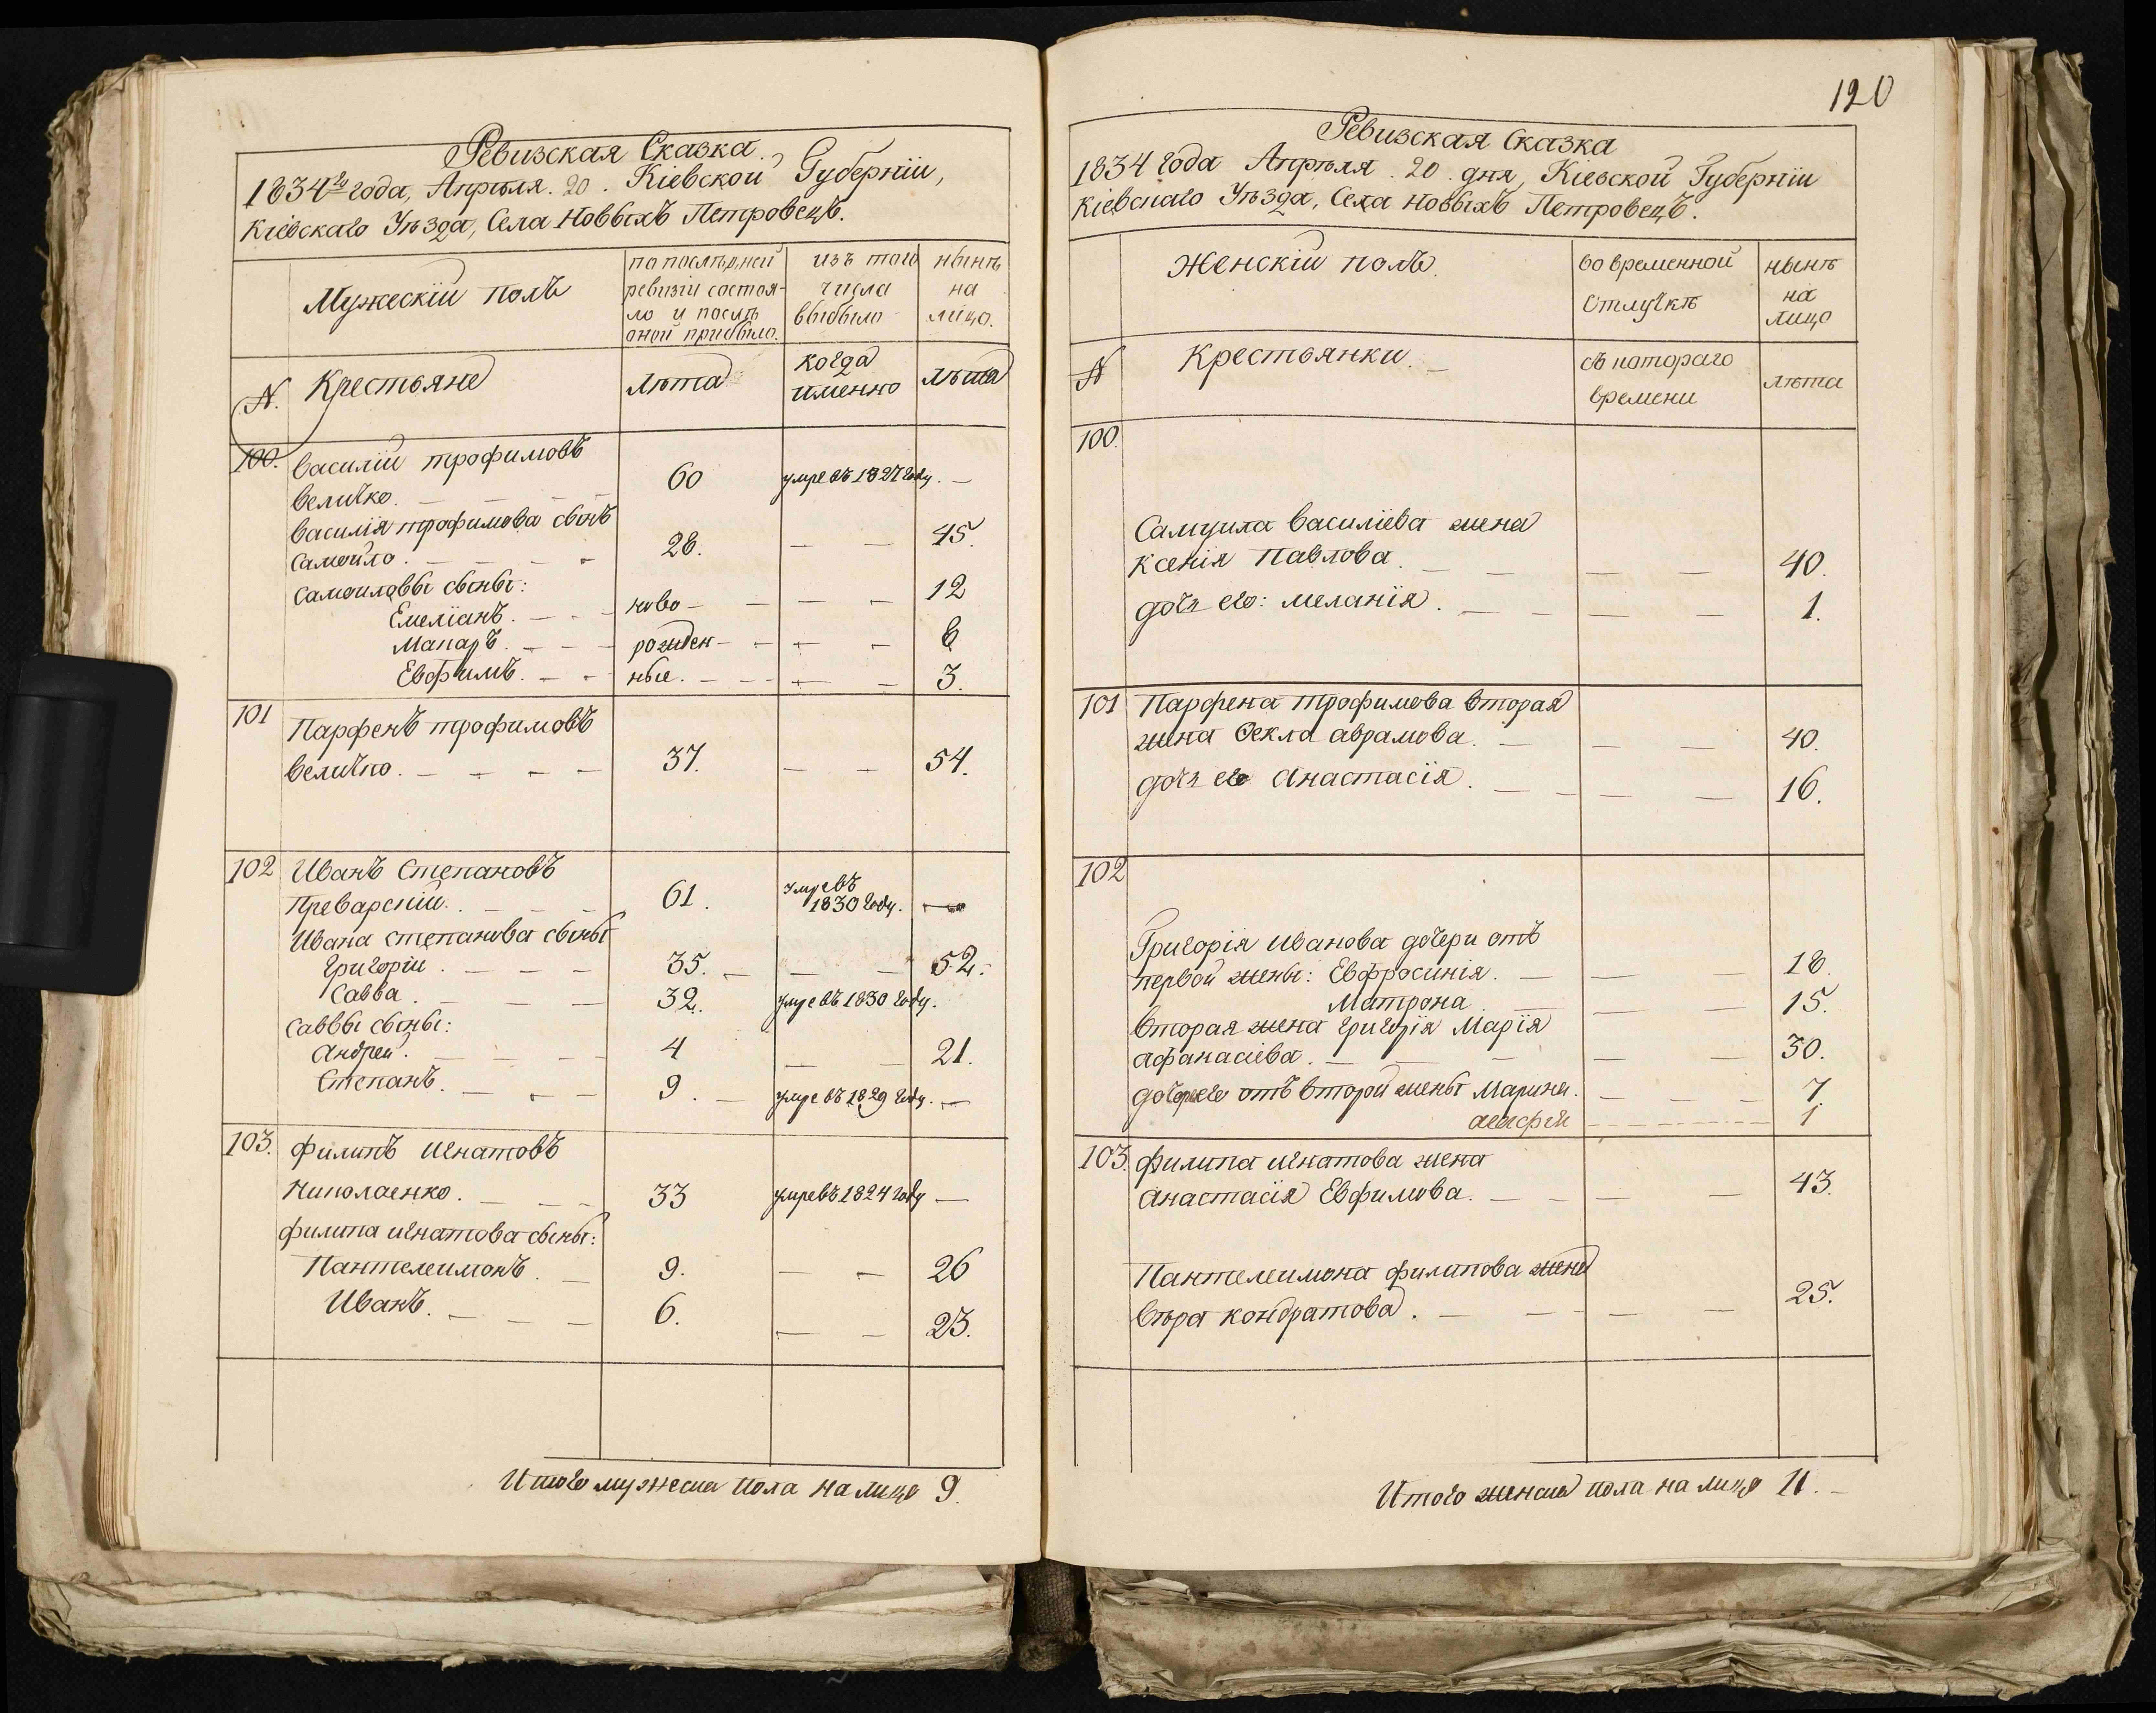 Ревизская Сказка.
1834го года, Апрѣля. 20. Кіевской Губерніи,
Кіевскаго Уѣзда, Села Новыхъ Петровецъ.
Мужескій полъ
по послѣдней
ревизіи состоя-
ло и послѣ
оной прибыло.
изъ того
числа
выбыло
нынѣ
на
лицо.
N. Крестьяне
лѣта
когда
именно
лѣта
100. Василій Трофимовъ
Величко. 60 умре въ 1827 году. —
Василія Трофимова сынъ
Самойло. 28. — — 45.
Самоиловы сыны:
Емеліанъ. ново- — — 12
Макаръ. рожден- — — 6
Евфимъ. ные. — — 3.
101 Парфенъ Трофимовъ
Величко. 37. — — 54.
102 Иванъ Степановъ
Преварскій. 61. умре въ
1830 году. —
Ивана Степанова сыны
Григорій. 35. — — 52.
Савва. 32. умре въ 1830 году.
Саввы сыны:
Андрей. 4 — — 21.
Степанъ. 9. умре въ 1829 году. —
103. Филипъ Игнатовъ
Николаенко. 33 умре въ 1824 году —
Филипа Игнатова сыны:
Пантелеимонъ. 9. — — 26
Иванъ. 6. — — 23.
Итого мужеска пола на лицо 9.
120
Ревизская Сказка
1834 года Апрѣля. 20. дня, Кіевской Губерніи
Кіевскаго Уѣзда, Села Новыхъ Петровецъ.
Женскій полъ.
во временной
отлучкѣ
нынѣ
на
лицо
N Крестьянки.
съ котораго
времени
лѣта
100.
Самуила Василіева жена
Ксенія Павлова. — — 40.
дочь его: Меланія. — — 1.
101 Парфена Трофимова вторая
жена Ѳекла Аврамова. — — 40.
дочь его Анастасія. — — 16.
102
Григорія Иванова дочери отъ
первой жены: Евфросинія. — — 18.
Матрона. — — 15.
вторая жена Григорія Марія
Афанасіева. — — 30.
дочери его отъ второй жены Марина. — — 7.
1
103. Филипа Игнатова жена
Анастасія Евфимова. — — 43.
Пантелеимона Филипова жена
Вѣра Кондратова. — — 25.
Итого женска пола на лицо 11. —